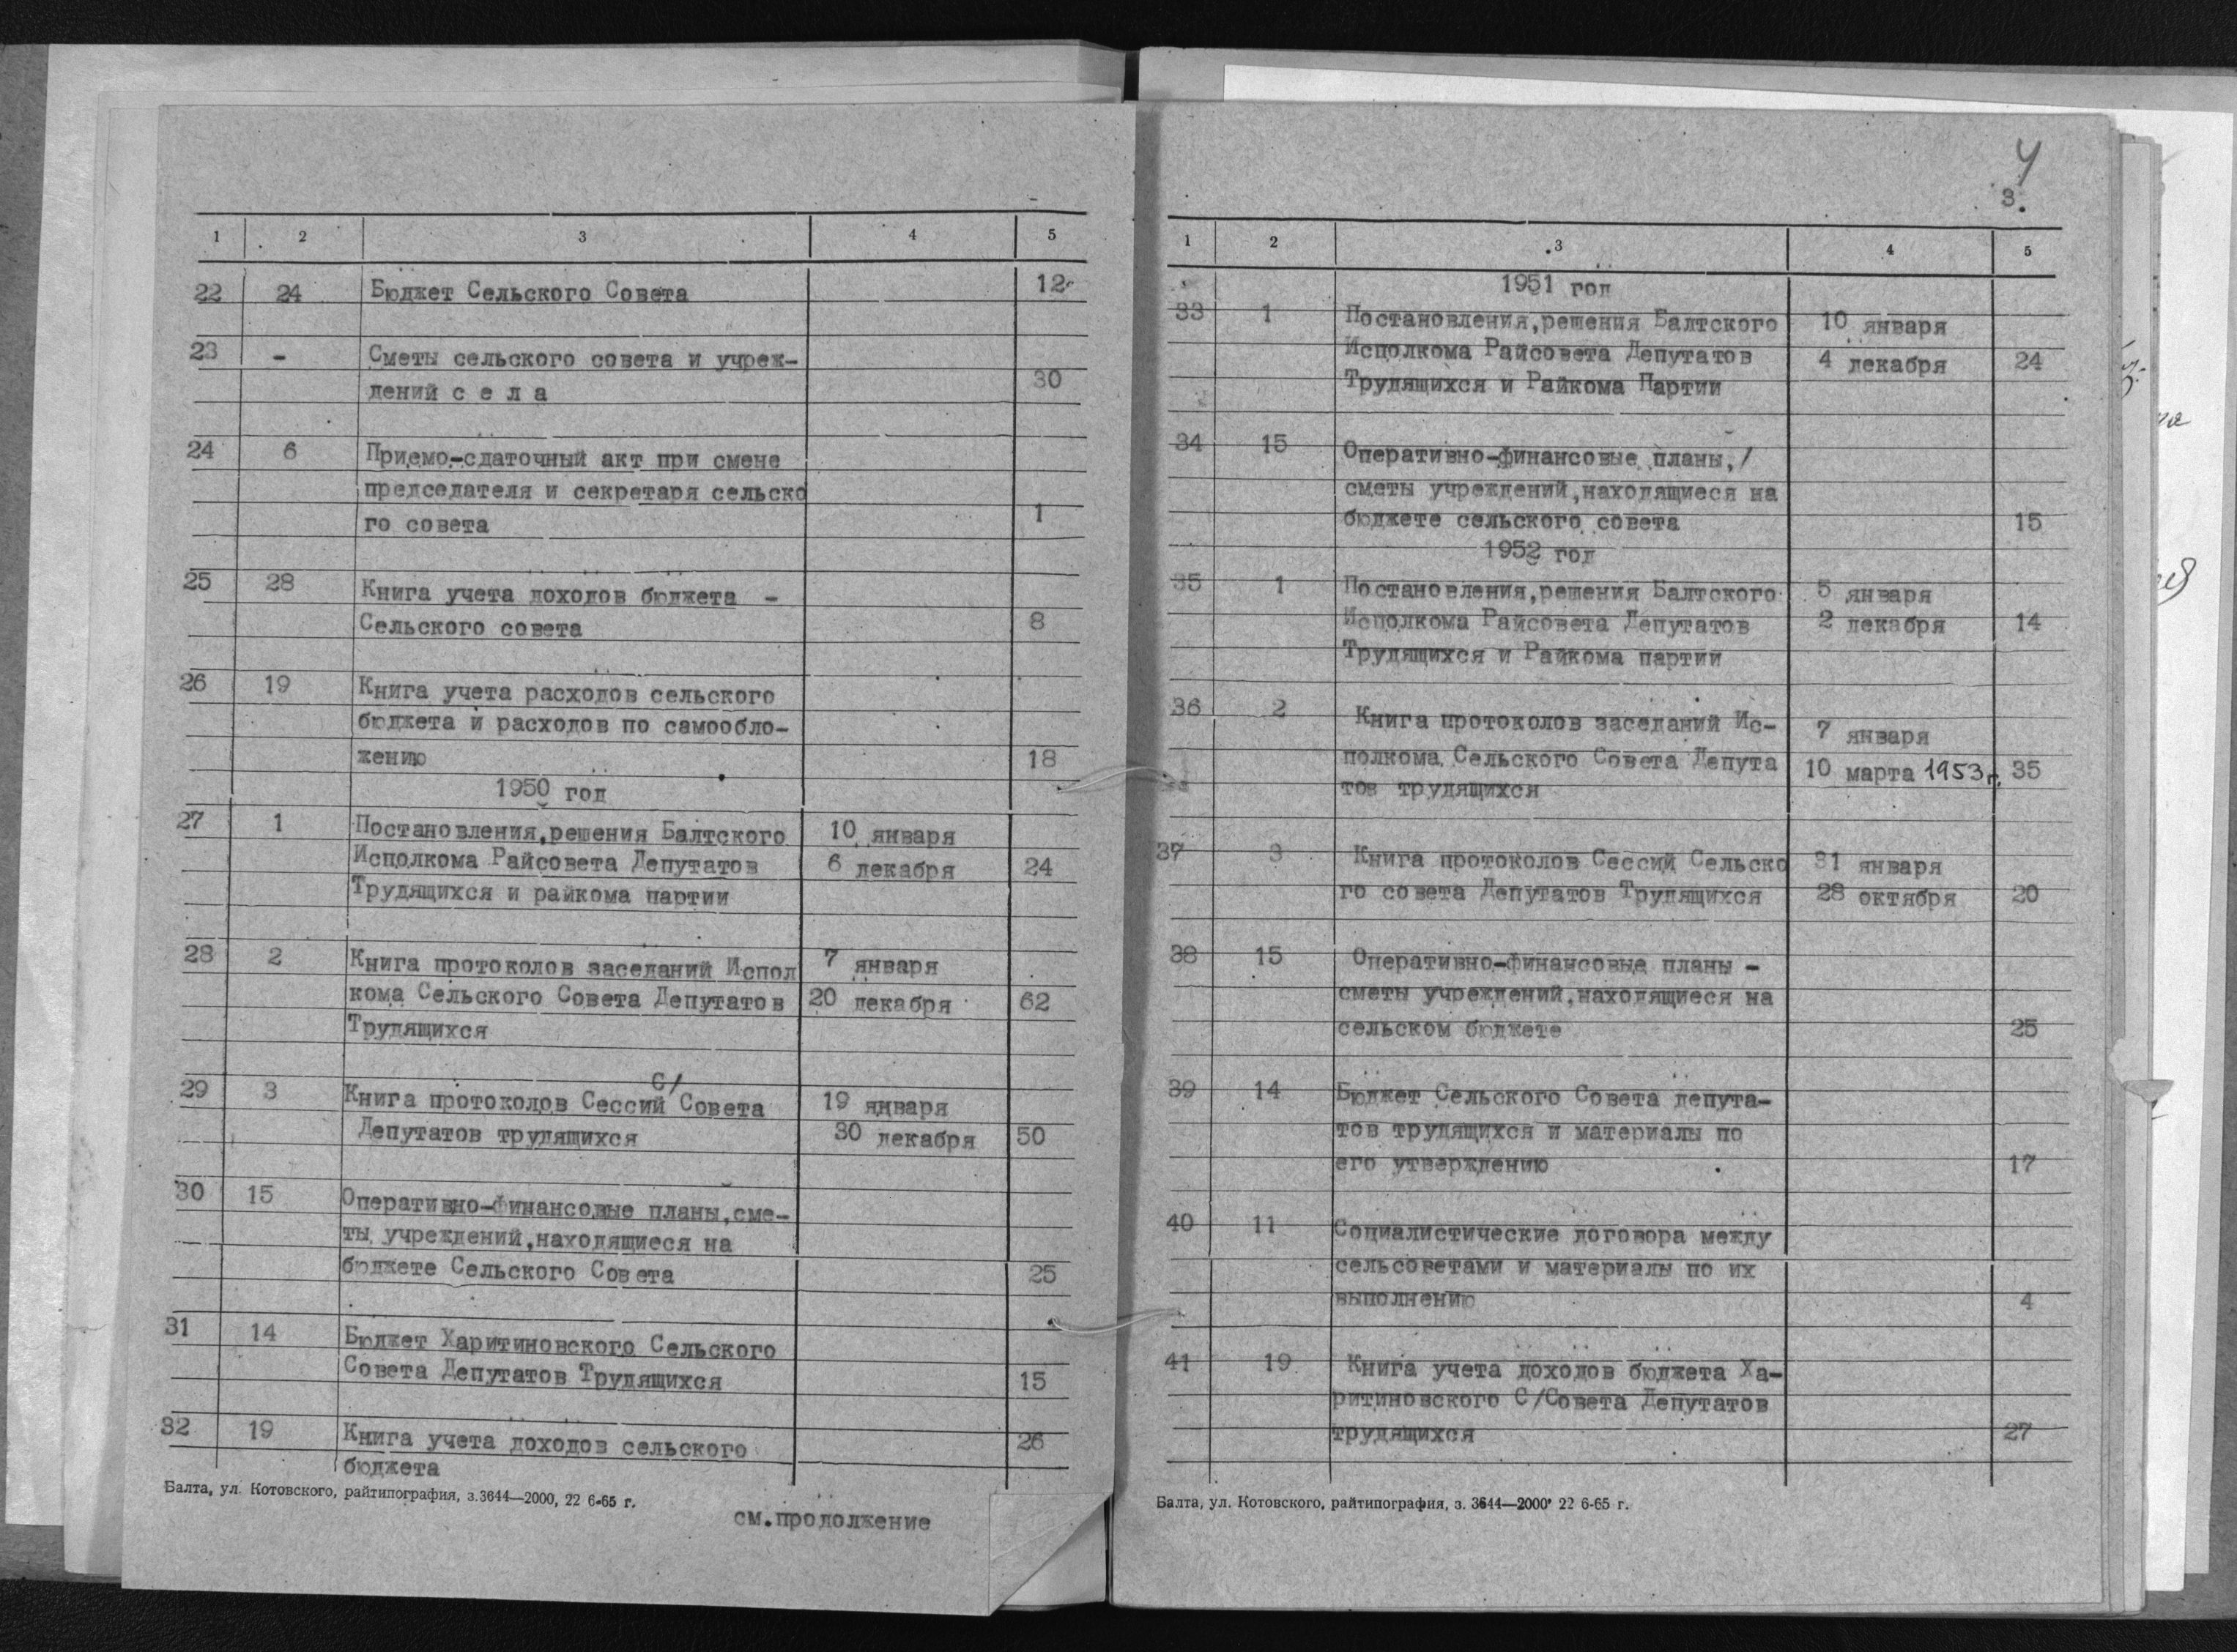 1 2 3 4 5
22 24 Бюджет Сельского Совета 12
23 - Сметы сельского совета и учреж-
дений с е л а 30
24 6 Приемо-сдаточный акт при смене
председателя и секретаря сельско
го совета 1
25 28 Книга учета доходов бюджета -
Сельского совета 8
26 19 Книга учета расходов сельского
бюджета и расходов по самообло-
жению 18
1950 год
27 1 Постановления,решения Балтского 10 января
Исполкома Райсовета Депутатов 6 декабря 24
Трудящихся и райкома партии
28 2 Книга протоколов заседаний Испол 7 января
кома Сельского Совета Депутатов 20 декабря 62
Трудящихся
29 3 Книга протоколов Сессий С/Совета 19 января
Депутатов трудящихся 30 декабря 50
30 15 Оперативно-финансовые планы,сме-
ты учреждений,находящиеся на
бюджете Сельского Совета 25
31 14 Бюджет Харитиновского Сельского
Совета Депутатов Трудящихся 15
32 19 Книга учета доходов сельского 26
бюджета
Балта, ул. Котовского, райтипография, з.3644—2000, 22 6-65 г.
см.продолжение
4
3.
1 2 3 4 5
1951 год
33 1 Постановления,решения Балтского 10 января
Исполкома Райсовета Депутатов 4 декабря 24
Трудящихся и Райкома Партии
34 15 Оперативно-финансовые планы,/
сметы учреждений,находящиеся на
бюджете сельского совета 15
1952 год
35 1 Постановления,решения Балтского 5 января
Исполкома Райсовета Депутатов 2 декабря 14
Трудящихся и Райкома партии
36 2 Книга протоколов заседаний Ис- 7 января
полкома Сельского Совета Депута 10 марта 1953 г. 35
тов трудящихся
37 3 Книга протоколов Сессий Сельско 31 января
го совета Депутатов Трудящихся 28 октября 20
38 15 Оперативно-финансовые планы -
сметы учреждений,находящиеся на
сельском бюджете 25
39 14 Бюджет Сельского Совета депута-
тов трудящихся и материалы по
его утверждению 17
40 11 Социалистические договора между
сельсоветами и материалы по их
выполнению 4
41 19 Книга учета доходов бюджета Ха-
ритиновского С/Совета Депутатов
трудящихся 27
Балта, ул. Котовского, райтипография, з. 3644—2000, 22 6-65 г.